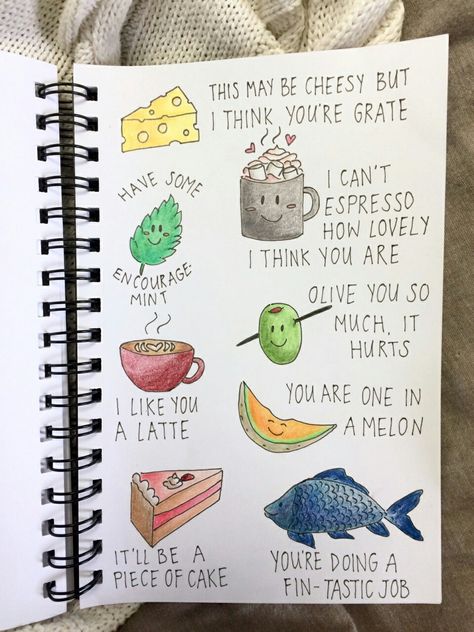 THIS MAY BE CHEESY BUT
I THINK YOU'RE GRATE
HAVE SOME
ENCOURAGE
MINT
I CAN'T
ESPRESSO
HOW LOVELY
I THINK YOU ARE
OLIVE YOU SO
MUCH, IT
HURTS
I LIKE YOU
A LATTE
YOU ARE ONE IN
A MELON
IT'LL BE A
PIECE OF CAKE
YOU'RE DOING A
FIN-TASTIC JOB